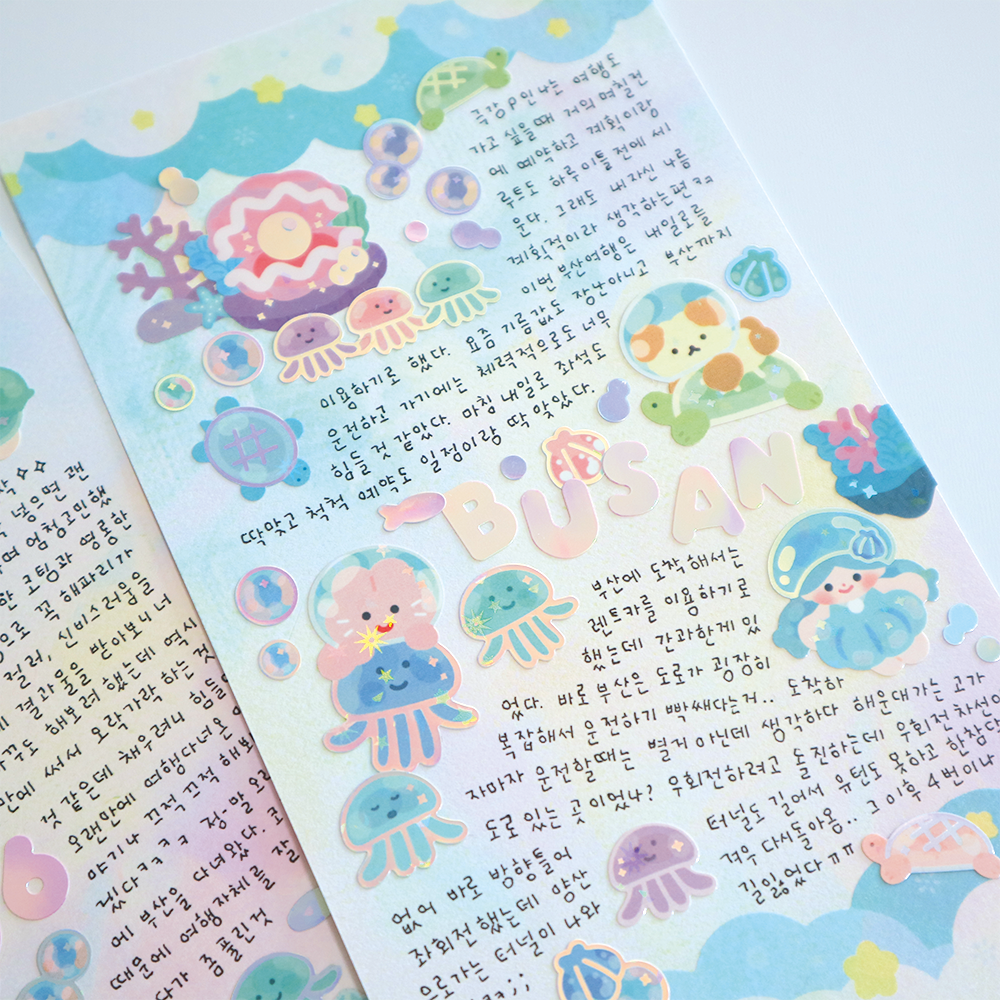 극강 P인 나는 여행도
가고 싶을때 거의 며칠전
에 예약하고 계획이랑
루트도 하루 이틀 전에 세
운다. 그래도 내 자신 나름
계획적이라 생각하는편 ㅋㅋ
이번 부산여행은 내일로를
이용하기로 했다. 요즘 기름값도 장난아니고 부산까지
운전하고 가기에는 체력적으로도 너무
힘들 것 같았다. 마침 내일로 좌석도
딱맞고 척척 예약도 일정이랑 딱 맞았다.
BUSAN
부산에 도착해서는
렌트카를 이용하기로
했는데 간과한게 있
었다. 바로 부산은 도로가 굉장히
복잡해서 운전하기 빡쌔다는거.. 도착하
자마자 운전할때는 별거 아닌데 생각하다 해운대가는 고가
도로 있는 곳이었나? 우회전하려고 돌진하는데 우회전 차선이
없어 바로 방향틀어
좌회전했는데 양산
으로가는 터널이 나와
터널도 길어서 유턴도 못하고 한참다
겨우 다시돌아옴.. 그 이후 4번이나
길잃었다 ㅠㅠ
넣으면 괜
며 엄청고민했
한 코팅과 영롱한
으로 꼭 해파리가
컬러, 신비스러움을
에 결과물을 받아보니 너
꾸도 해보려 했는데 역시
안에 써서 오락가락 하는 것
것 같은데 채우려니 힘들
오랜만에 여행다녀온
야기나 끄적끄적 해보
겠다ㅋㅋㅋㅋ 정-말 오
에 부산을 다녀왔다. 코
때문에 여행자체를 잘
다가 좀 풀린것
6